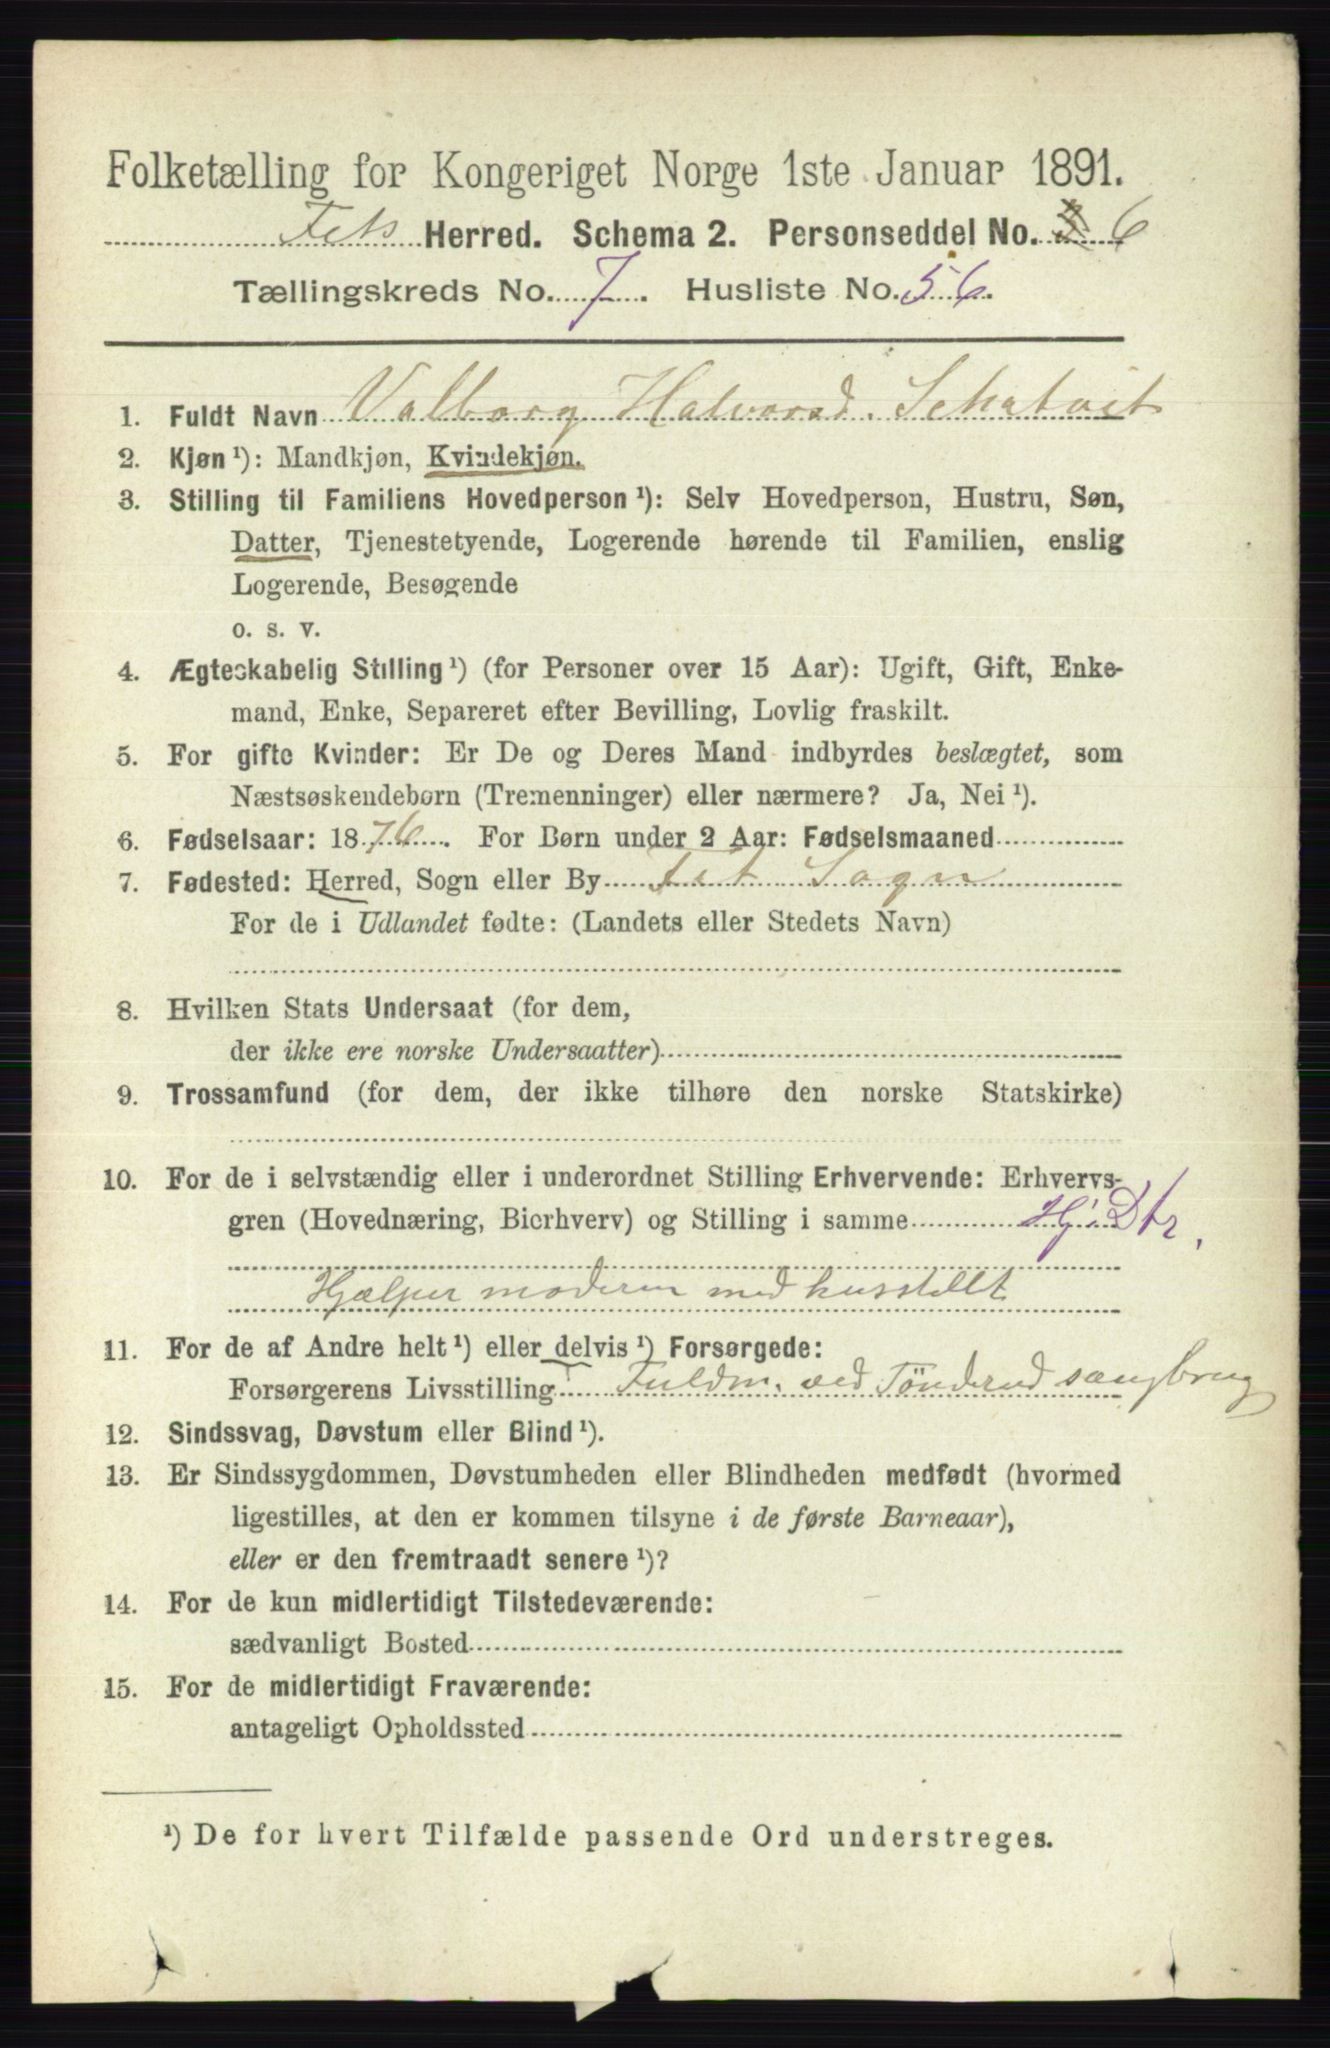 Folketælling for Kongeriget Norge 1ste Januar 1891.
Fets Herred. Schema 2. Personseddel No. 6
Tællingskreds No. 7. Husliste No. 56.
1. Fuldt Navn Valborg Halvorsd. Schatvet
2. Kjøn ¹): Mandkjøn, Kvindekjøn.
3. Stilling til Familiens Hovedperson ¹): Selv Hovedperson, Hustru, Søn,
Datter, Tjenestetyende, Logerende hørende til Familien, enslig
Logerende, Besøgende
o. s. v.
4. Ægteskabelig Stilling ¹) (for Personer over 15 Aar): Ugift, Gift, Enke-
mand, Enke, Separeret efter Bevilling, Lovlig fraskilt.
5. For gifte Kvinder: Er De og Deres Mand indbyrdes beslægtet, som
Næstsøskendebørn (Tremenninger) eller nærmere? Ja, Nei ¹).
6. Fødselsaar: 1876. For Børn under 2 Aar: Fødselsmaaned
7. Fødested: Herred, Sogn eller By Fet Sogn
For de i Udlandet fødte: (Landets eller Stedets Navn)
8. Hvilken Stats Undersaat (for dem,
der ikke ere norske Undersaatter)
9. Trossamfund (for dem, der ikke tilhøre den norske Statskirke)
10. For de i selvstændig eller i underordnet Stilling Erhvervende: Erhvervs-
gren (Hovednæring, Bierhverv) og Stilling i samme Hj. Dtr.
Hjælper moderen med husstellt
11. For de af Andre helt ¹) eller delvis ¹) Forsørgede:
Forsørgerens Livsstilling Fuldm. ved Tönderud saugbrug
12. Sindssvag, Døvstum eller Blind ¹).
13. Er Sindssygdommen, Døvstumheden eller Blindheden medfødt (hvormed
ligestilles, at den er kommen tilsyne i de første Barneaar),
eller er den fremtraadt senere ¹)?
14. For de kun midlertidigt Tilstedeværende:
sædvanligt Bosted
15. For de midlertidigt Fraværende:
antageligt Opholdssted
¹) De for hvert Tilfælde passende Ord understreges.